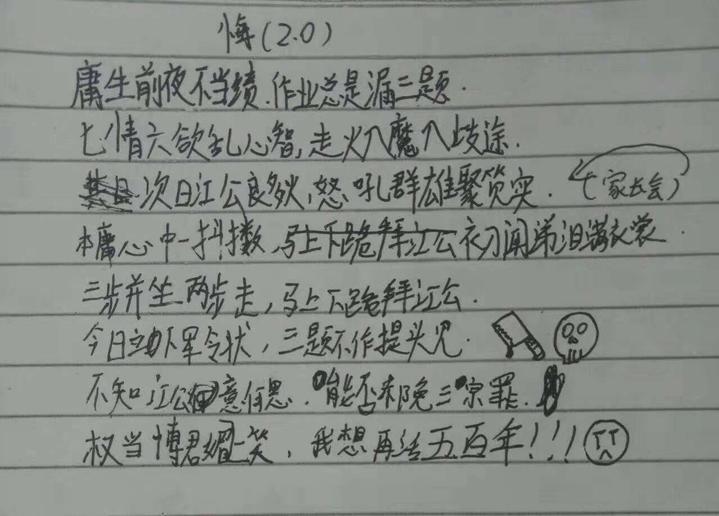 悔(2.0)
庸生前夜不当绩.作业总是漏三题.
七情六欲乱心智,走火入魔入歧途.
次日江公良多,怒吼群雄聚笃实.(家长会)
本庸心中一抖擞,马上下跪拜江公初闻涕泪满衣裳.
三步并坐两步走,马上下跪拜江公.
今日立下军令状,三题不作提头见.
不知江公意何思.能否来陵三宗罪.
权当博君一笑,我想再活五百年!!!